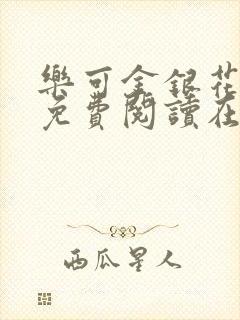 樂可金銀花
免費閱讀在
西瓜星人